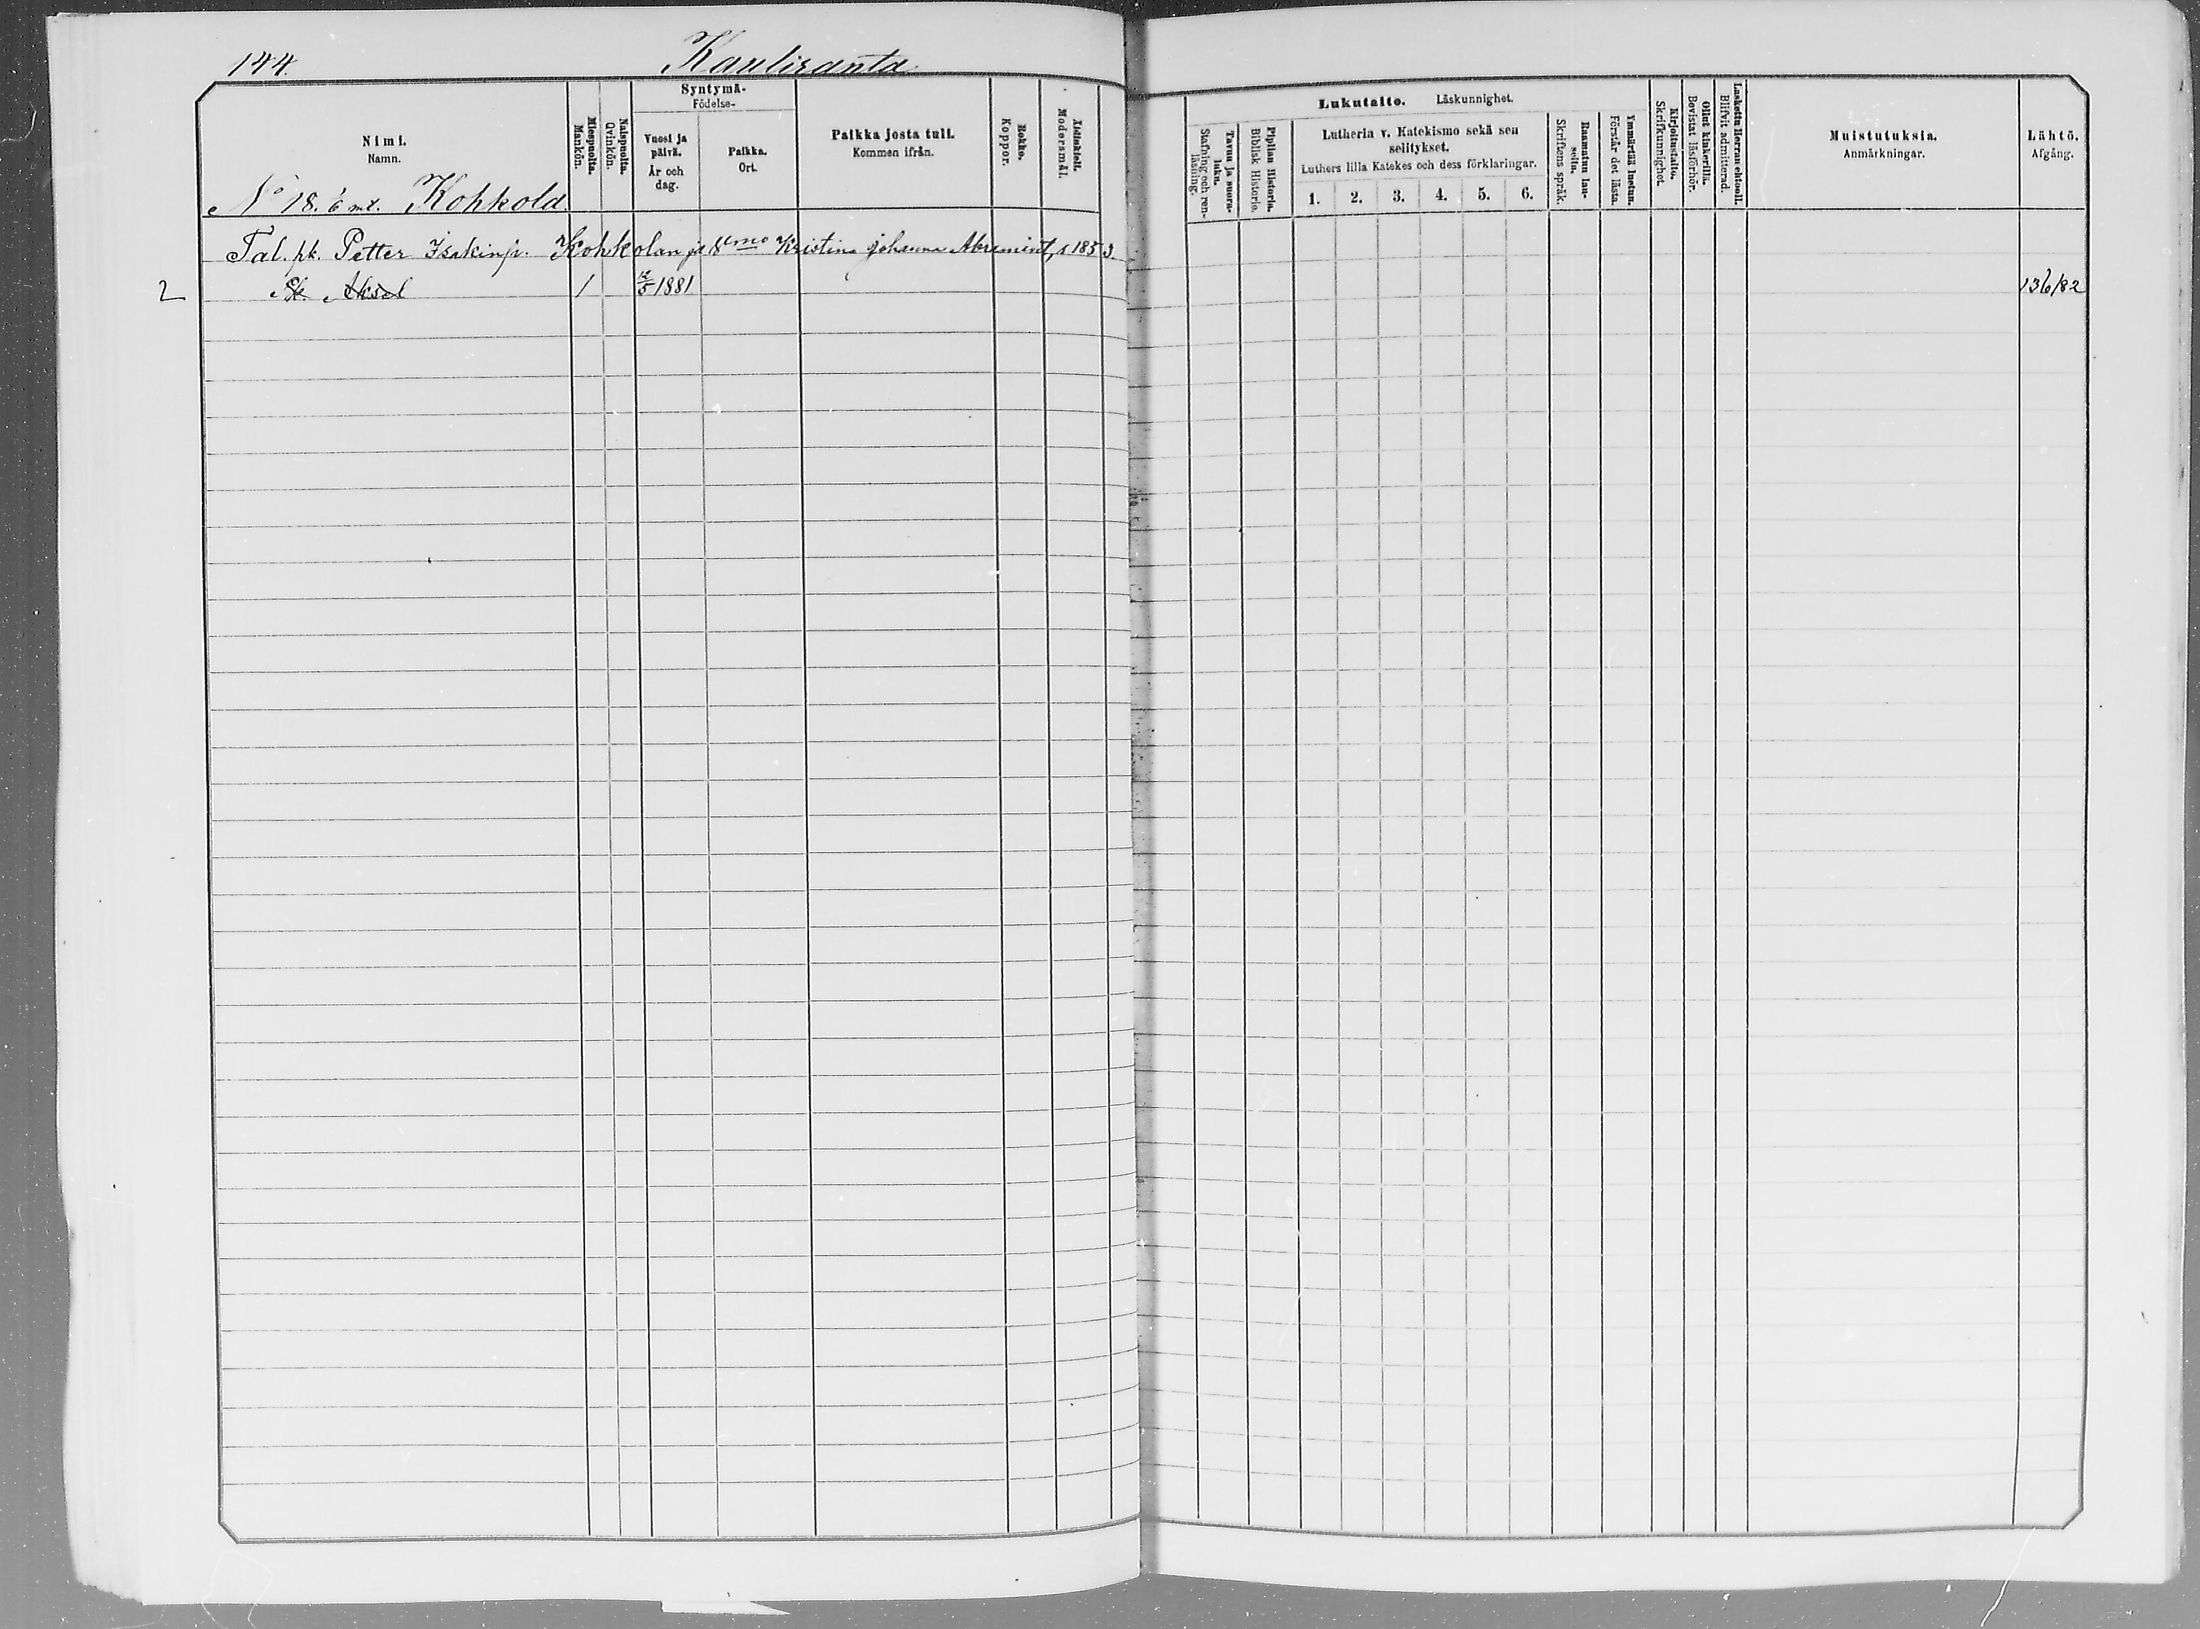 144.
Kauliranta
Nimi.
Namn.
Miespuolta.
Mankön.
Naispuolta.
Qvinkön.
Syntymä-
Födelse-
Vuosi ja
päivä.
År och
dag.
Paikka.
Ort.
Paikka josta tuli.
Kommen ifrån.
Rokko.
Koppor.
Äidinkieli.
Modersmål.
Lukutaito. Läskunnighet.
Tavuu ja suora-
luku.
Stafning och ren-
läsning.
Piplian Historia.
Biblisk Historie.
Lutheria v. Katekismo sekä sen
selitykset.
Luthers lilla Katekes och dess förklaringar.
1. 2. 3. 4. 5. 6.
Raamatun lau-
seita.
Skriftens språk.
Ymmärtää luetun.
Förstår det lästa.
Kirjoitustaito.
Skrifkunnighet.
Ollut kinkerillä.
Bevistat läsförhör.
Laskettu Herran ehtooll.
Blifvit admitterad.
Muistutuksia.
Anmärkningar.
Lähtö.
Afgång.
No 18. 6 mt. Kohkola
Tal. pk. Petter Isakinp. Kohkolan ja Kristina Johanna s 1853
2 Pk Aksel 1 12/5 1881 136/82